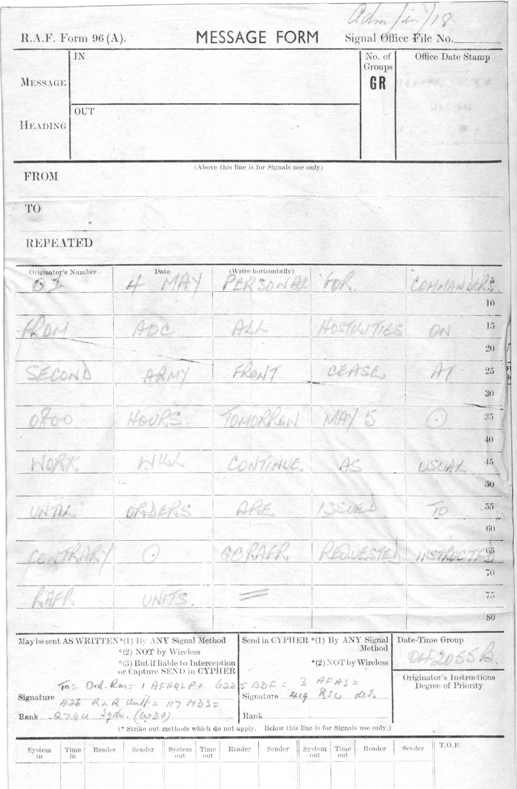 Adm/in/18
R.A.F. Form 96 (A). MESSAGE FORM Signal Office File No.
IN No. of Groups Office Date Stamp
MESSAGE GR
HEADING OUT
(Above this line is for Signals use only)
FROM
TO
REPEATED
Originator's Number Date (Write horizontally)
4 MAY PERSONAL FOR COMMANDERS
10
FROM AOC ALL HOSTILITIES ON 15
20
SECOND ARMY FRONT CEASE AT 25
30
0800 HOURS TOMORROW MAY 5 35
40
WORK WILL CONTINUE AS USUAL 45
50
UNTIL ORDERS ARE ISSUED TO 55
60
CONTRARY REQUESTED 65
70
UNITS. 75
80
May be sent AS WRITTEN *(1) By ANY Signal Method Send in CYPHER *(1) By ANY Signal Method Date-Time Group
*(2) NOT by Wireless *(2) NOT by Wireless
*(3) But if liable to Interception or Capture SEND in CYPHER
Originator's Instructions Degree of Priority
Signature Signature
Rank Rank
(* Strike out methods which do not apply. Below this line is for Signals use only.)
System in Time in Reader Sender System out Time out Reader Sender System out Time out Reader Sender T.O.R.